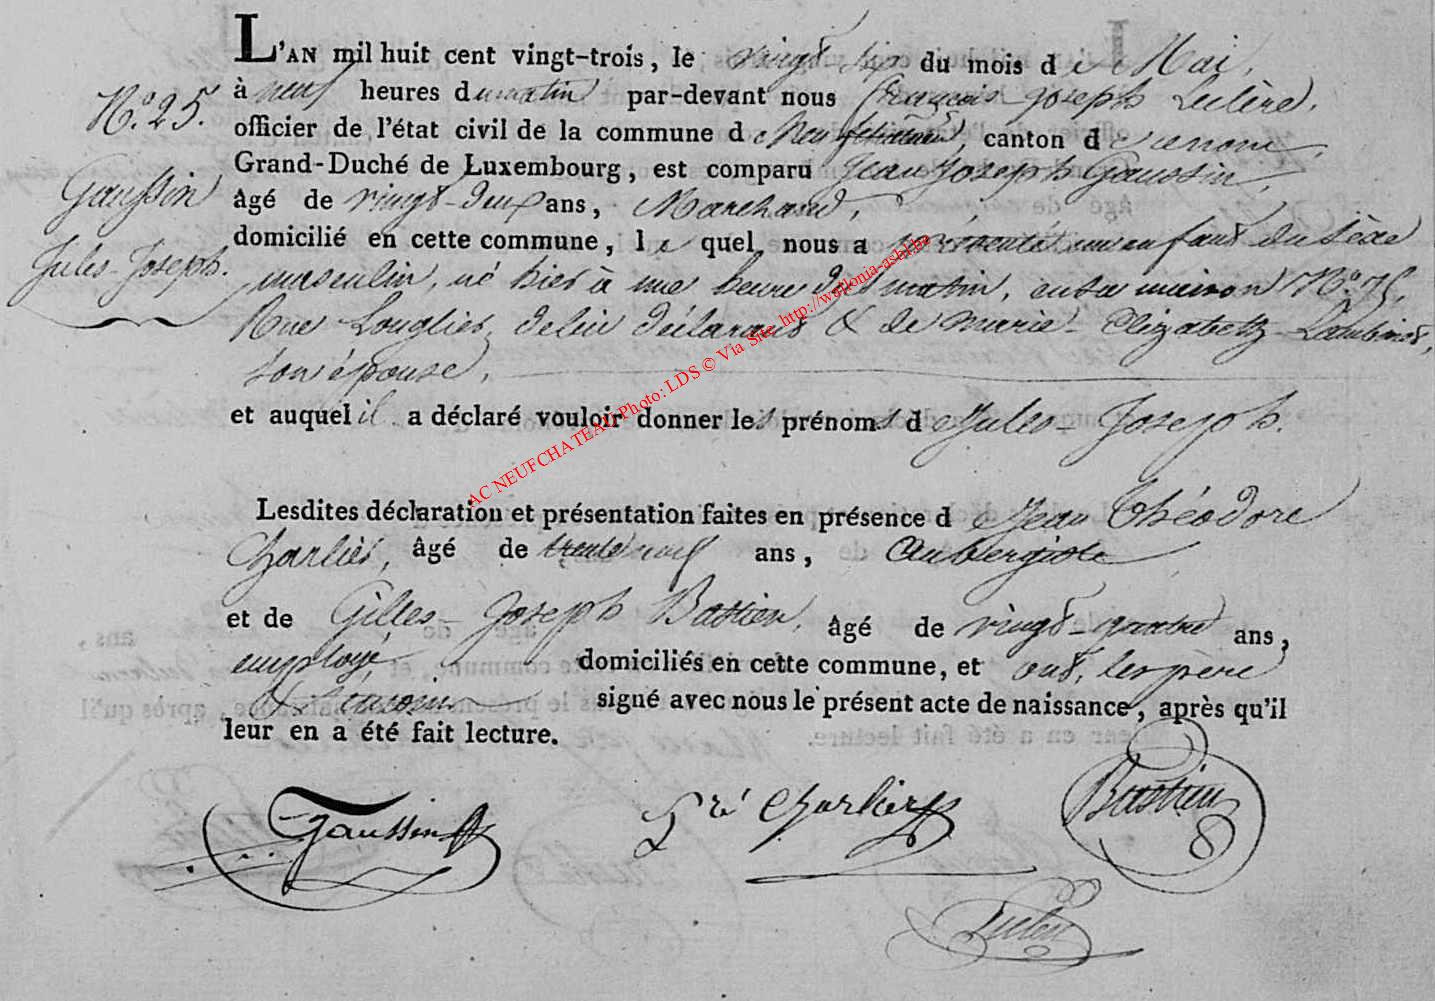 L'AN mil huit cent vingt-trois, le vingt-six du mois de Mai,
N.o 25.
à neuf heures du matin par-devant nous françois joseph Leclère,
officier de l'état civil de la commune de Neufchateau, canton d
Grand-Duché de Luxembourg, est comparu Jean Joseph Gaussin,
Gaussin
Jules-Joseph.
âgé de vingt-deux ans, Marchand,
domicilié en cette commune, lequel nous a présenté un enfant du sèxe
masculin, né hier à une heure du matin, en sa maison N.o 75,
Rue Longlier, de lui déclarant & de Marie-Elizabeth
son épouse,
et auquel il a déclaré vouloir donner les prénoms de Jules-Joseph.
Lesdites déclaration et présentation faites en présence de Jean Théodore
Charlier, âgé de trente neuf ans, Aubergiste
et de Gilles-Joseph Bastien, âgé de vingt-quatre ans,
employé, domiciliés en cette commune, et ont, les père
& témoins signé avec nous le présent acte de naissance, après qu'il
leur en a été fait lecture.
Gaussin Charlier Bastien
Leclère
AC NEUFCHATEAU Photo: LDS © Via Site http://wallonia-asbl.be